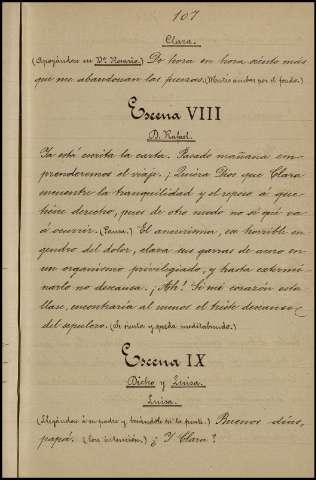 107
Clara.
(Apoyándose en Dª Rosario.) De hora en hora siento más
que me abandonan las fuerzas. (Mutis ambas por el fondo.)
Escena VIII
D. Rafael.
Ya está escrita la carta. Pasado mañana em-
prenderemos el viaje. ¡Quiera Dios que Clara
encuentre la tranquilidad y el reposo á que
tiene derecho, pues de otro modo no sé qué va
á ocurrir. (Pausa.) El aneurisma, ese horrible en-
gendro del dolor, clava sus garras de acero en
un organismo privilegiado, y hasta extermi-
narlo no descansa. ¡Ah! Si mi corazón esta-
llase, encontraría al menos el triste descanso
del sepulcro. (Se sienta y queda meditabundo.)
Escena IX
Dicho y Luisa.
Luisa.
(Llegándose á su padre y besándole en la frente.) Buenos días,
papá. (Con intención.) ¿Y Clara?